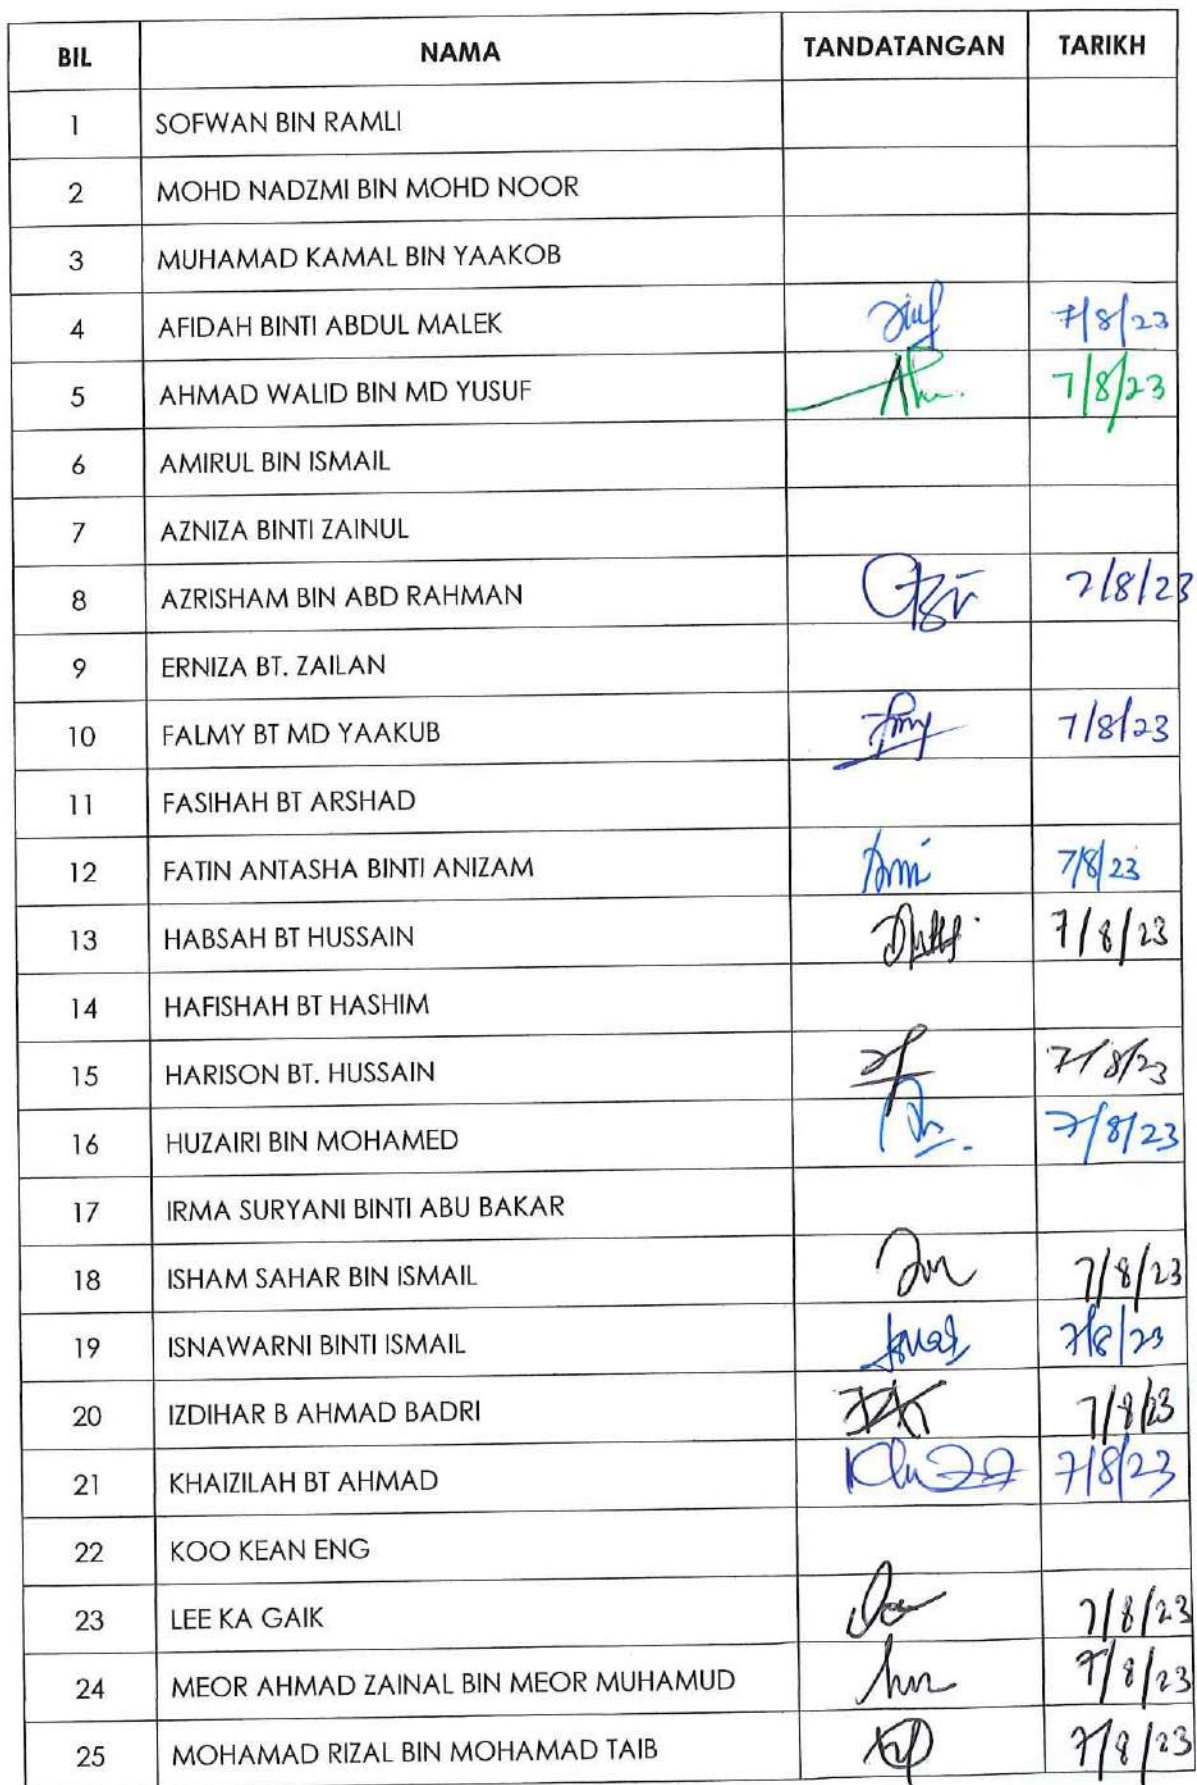 BIL NAMA TANDATANGAN TARIKH
1 SOFWAN BIN RAMLI
2 MOHD NADZMI BIN MOHD NOOR
3 MUHAMAD KAMAL BIN YAAKOB
4 AFIDAH BINTI ABDUL MALEK 7/8/23
5 AHMAD WALID BIN MD YUSUF 7/8/23
6 AMIRUL BIN ISMAIL
7 AZNIZA BINTI ZAINUL
8 AZRISHAM BIN ABD RAHMAN 7/8/23
9 ERNIZA BT. ZAILAN
10 FALMY BT MD YAAKUB 7/8/23
11 FASIHAH BT ARSHAD
12 FATIN ANTASHA BINTI ANIZAM 7/8/23
13 HABSAH BT HUSSAIN 7/8/23
14 HAFISHAH BT HASHIM
15 HARISON BT. HUSSAIN 7/8/23
16 HUZAIRI BIN MOHAMED 7/8/23
17 IRMA SURYANI BINTI ABU BAKAR
18 ISHAM SAHAR BIN ISMAIL 7/8/23
19 ISNAWARNI BINTI ISMAIL 7/8/23
20 IZDIHAR B AHMAD BADRI 7/8/23
21 KHAIZILAH BT AHMAD 7/8/23
22 KOO KEAN ENG
23 LEE KA GAIK 7/8/23
24 MEOR AHMAD ZAINAL BIN MEOR MUHAMUD 7/8/23
25 MOHAMAD RIZAL BIN MOHAMAD TAIB 7/8/23